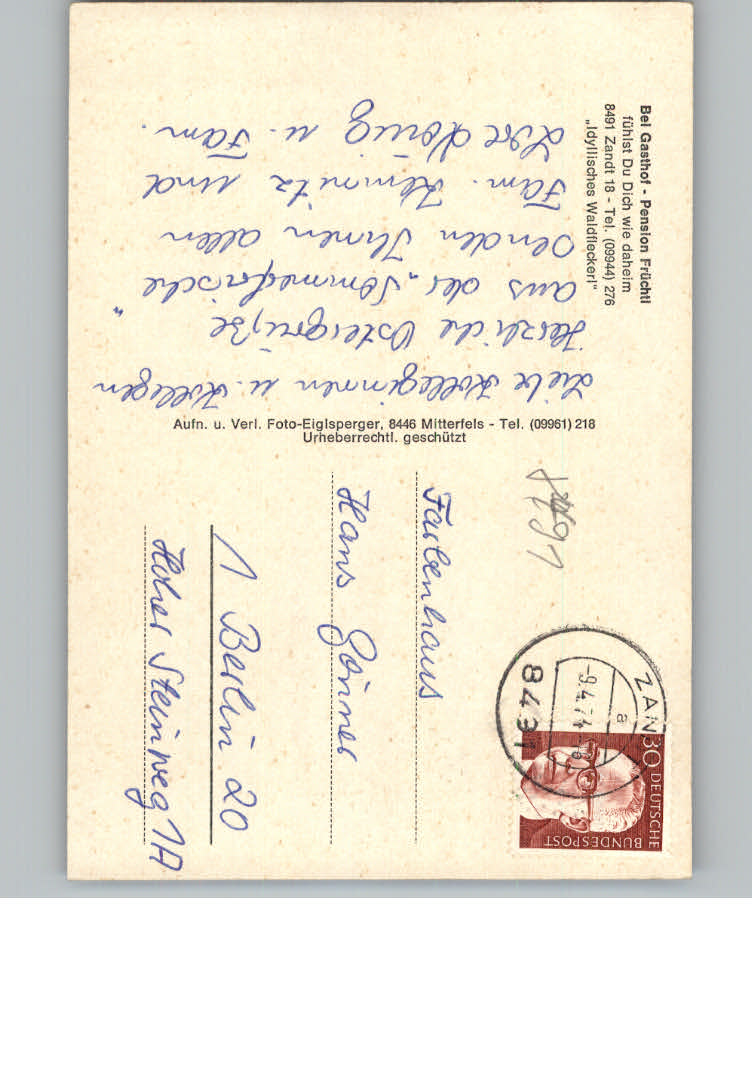 Bei Gasthof - Pension Früchtl
fühlst Du Dich wie daheim
8491 Zandt 18 - Tel. (09944) 276
„Idyllisches Waldfleckerl"
Liebe Kolleginnen u. Kollegen
Herzliche Ostergrüße
aus der „Sommerfrische"
senden Ihnen allen
Fam. und
u. Fam.
Aufn. u. Verl. Foto-Eiglsperger, 8446 Mitterfels - Tel. (09961) 218
Urheberrechtl. geschützt
ZAN
a
-9.4.74
8431
30 DEUTSCHE
BUNDESPOST
Farbenhaus
Hans
1 Berlin 20
Hoher Steinweg 1A